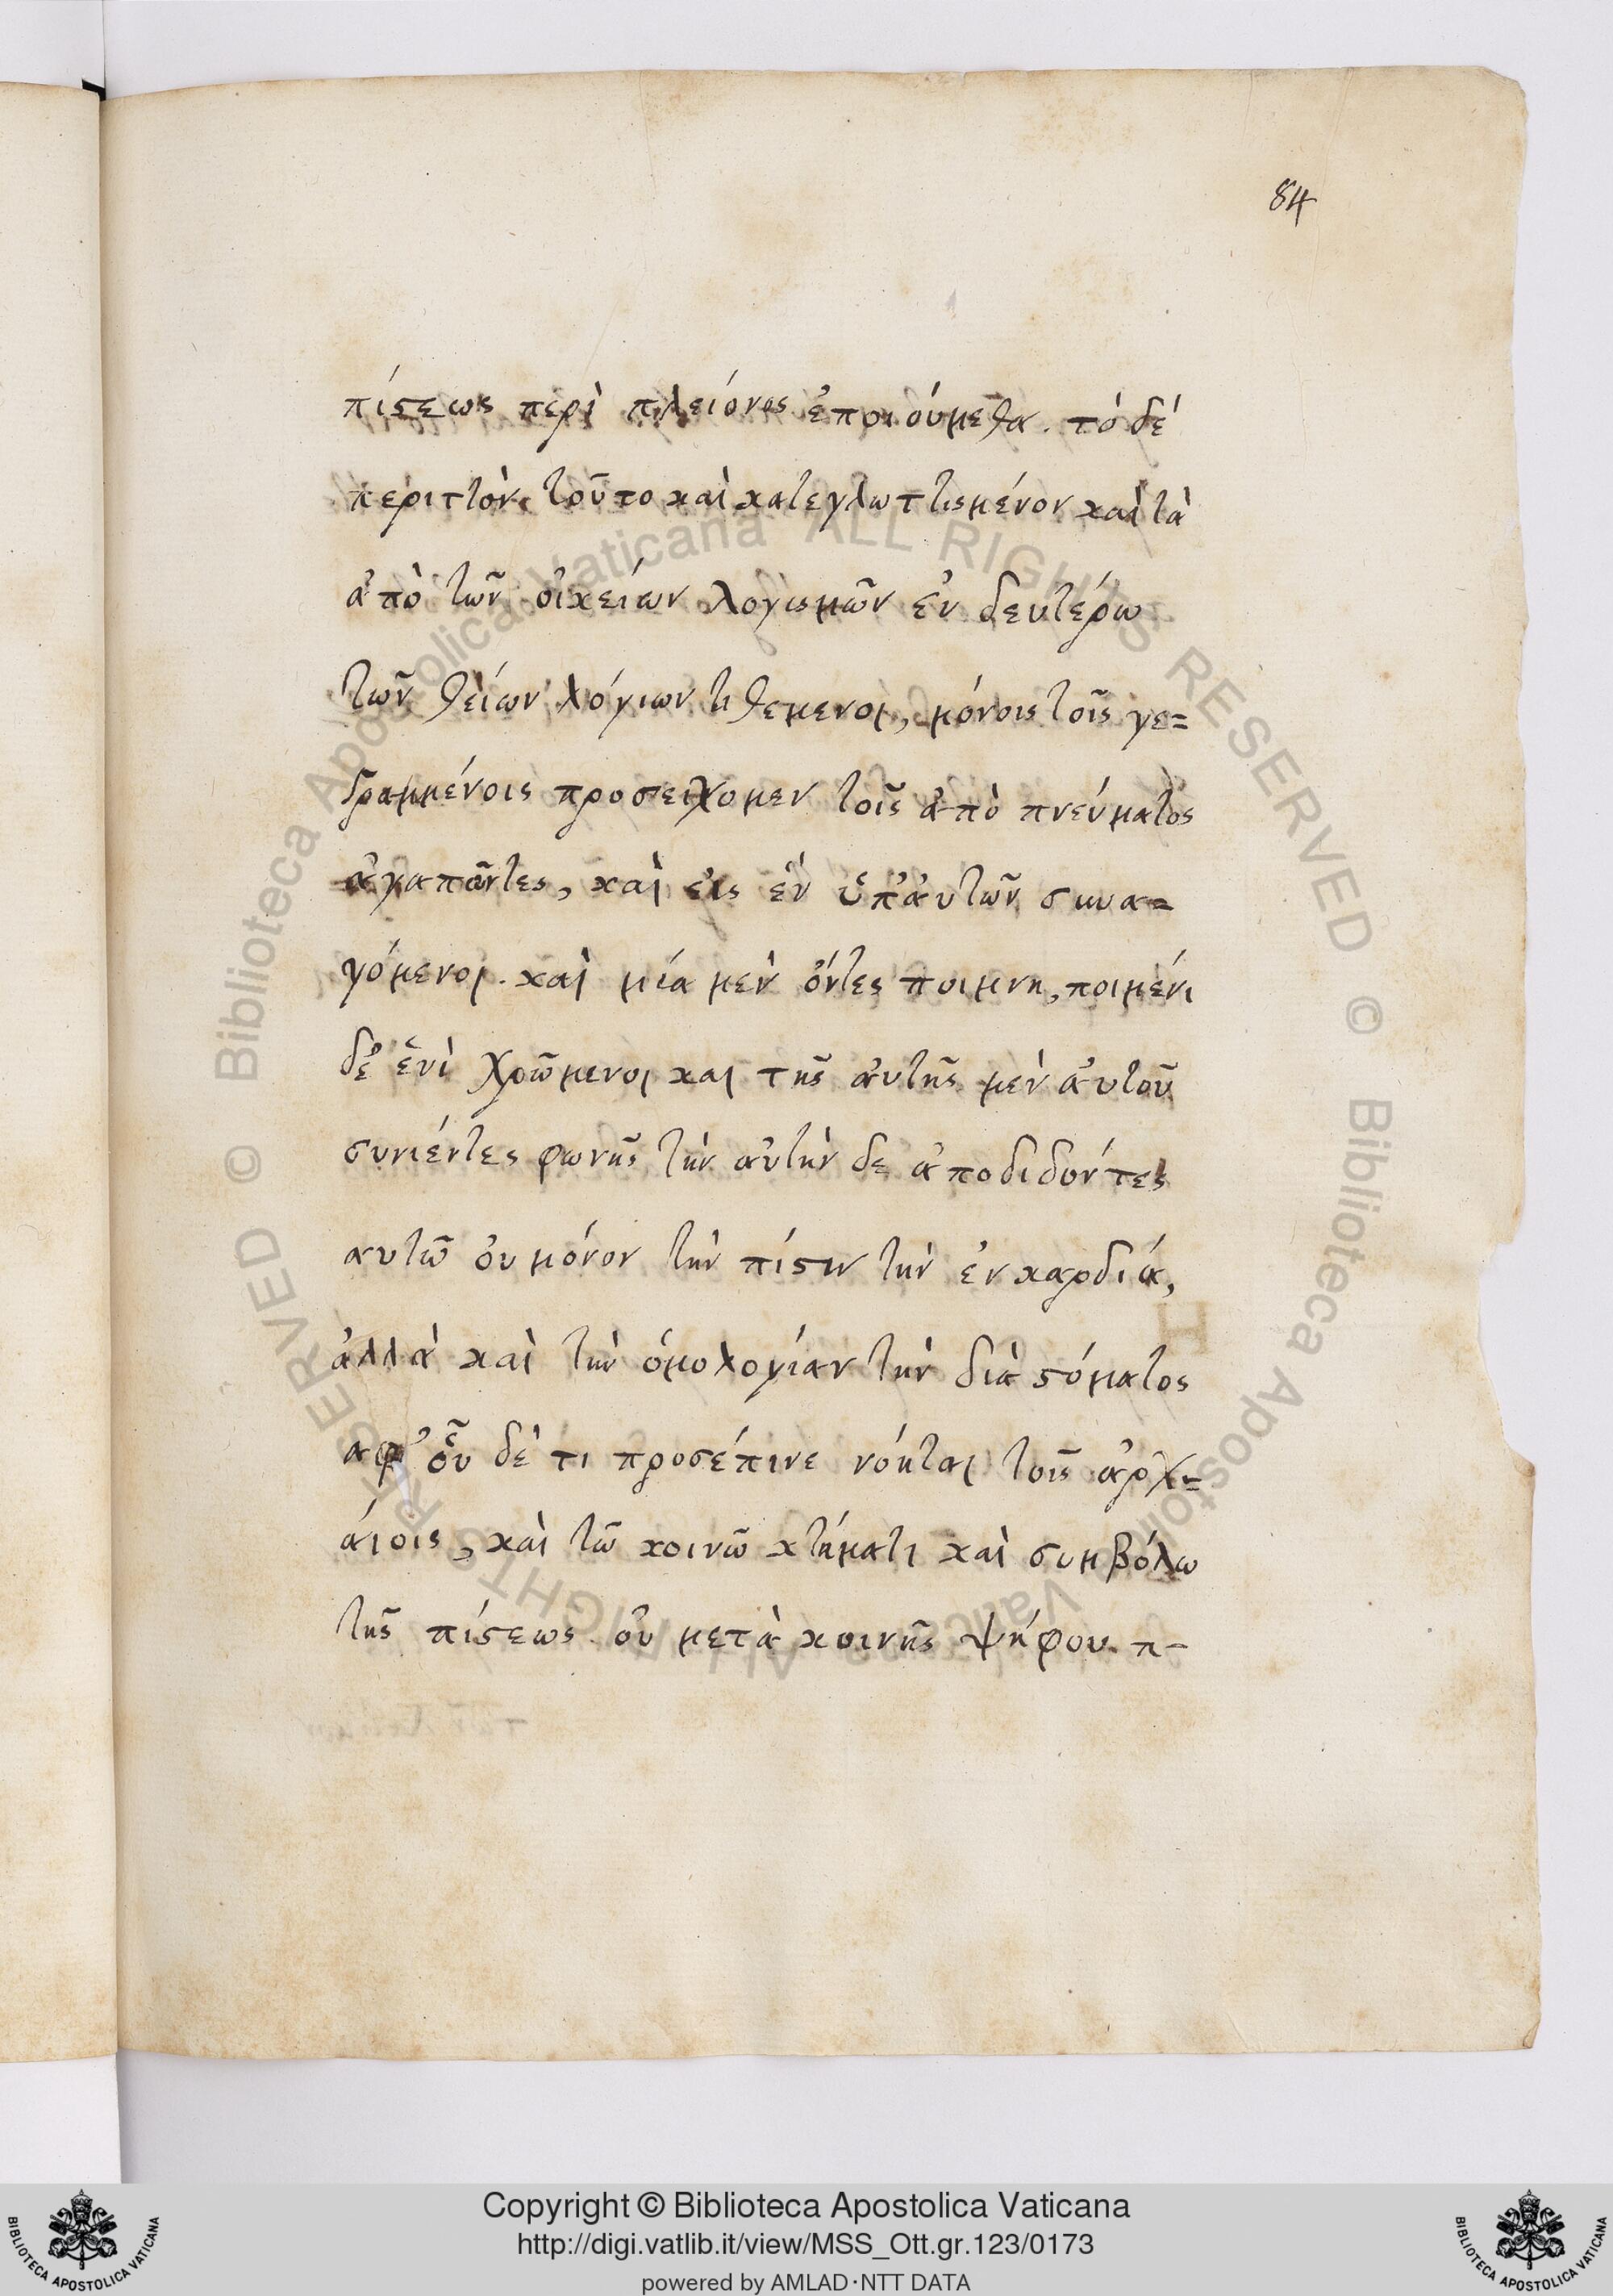 84
πίστεως περὶ πλείονος ἐποιούμεθα. τὸ δέ
περιττὸν τοῦτο καὶ κατεγλωττισμένον καὶ τὰ
ἀπὸ τῶν οἰκείων λογισμῶν ἐν δευτέρω
τῶν θείων λόγιων τιθεμενοι, μόνοις τοῖς γε=
γραμμένοις προσειχομεν τοῖς ἀπὸ πνεύματος
ἀγαπῶντες, καὶ εἰς ἓν ὑπ' ἀυτῶν συνα=
γόμενοι. καὶ μία μὲν ὄντες ποιμνη, ποιμένι
δὲ ἑνὶ χρῶμενοι και τῆς ἀυτῆς μὲν ἀυτοῦ
συνιέντες φωνῆς τὴν αὐτὴν δε ἀποδιδόντες
αυτῶ ὀυ μόνον τὴν πίστιν τὴν ἐν καρδιά,
ἀλλὰ καὶ τὴν ὁμολογίαν τὴν διὰ στόματος
αφ' οὗ δὲ τι προσέπινε νόηται τοῖς ἀρχ=
άιοις, καὶ τῶ κοινῶ κτήματι καὶ συμβόλω
τῆς πίστεως ὀυ μετὰ κοινῆς ψήφου π-
Copyright © Biblioteca Apostolica Vaticana
http://digi.vatlib.it/view/MSS_Ott.gr.123/0173
powered by AMLAD·NTT DATA
BIBLIOTECA APOSTOLICA VATICANA
BIBLIOTECA APOSTOLICA VATICANA
© Biblioteca Apostolica Vaticana ALL RIGHTS RESERVED © Biblioteca Apostolica Vaticana ALL RIGHTS RESERVED